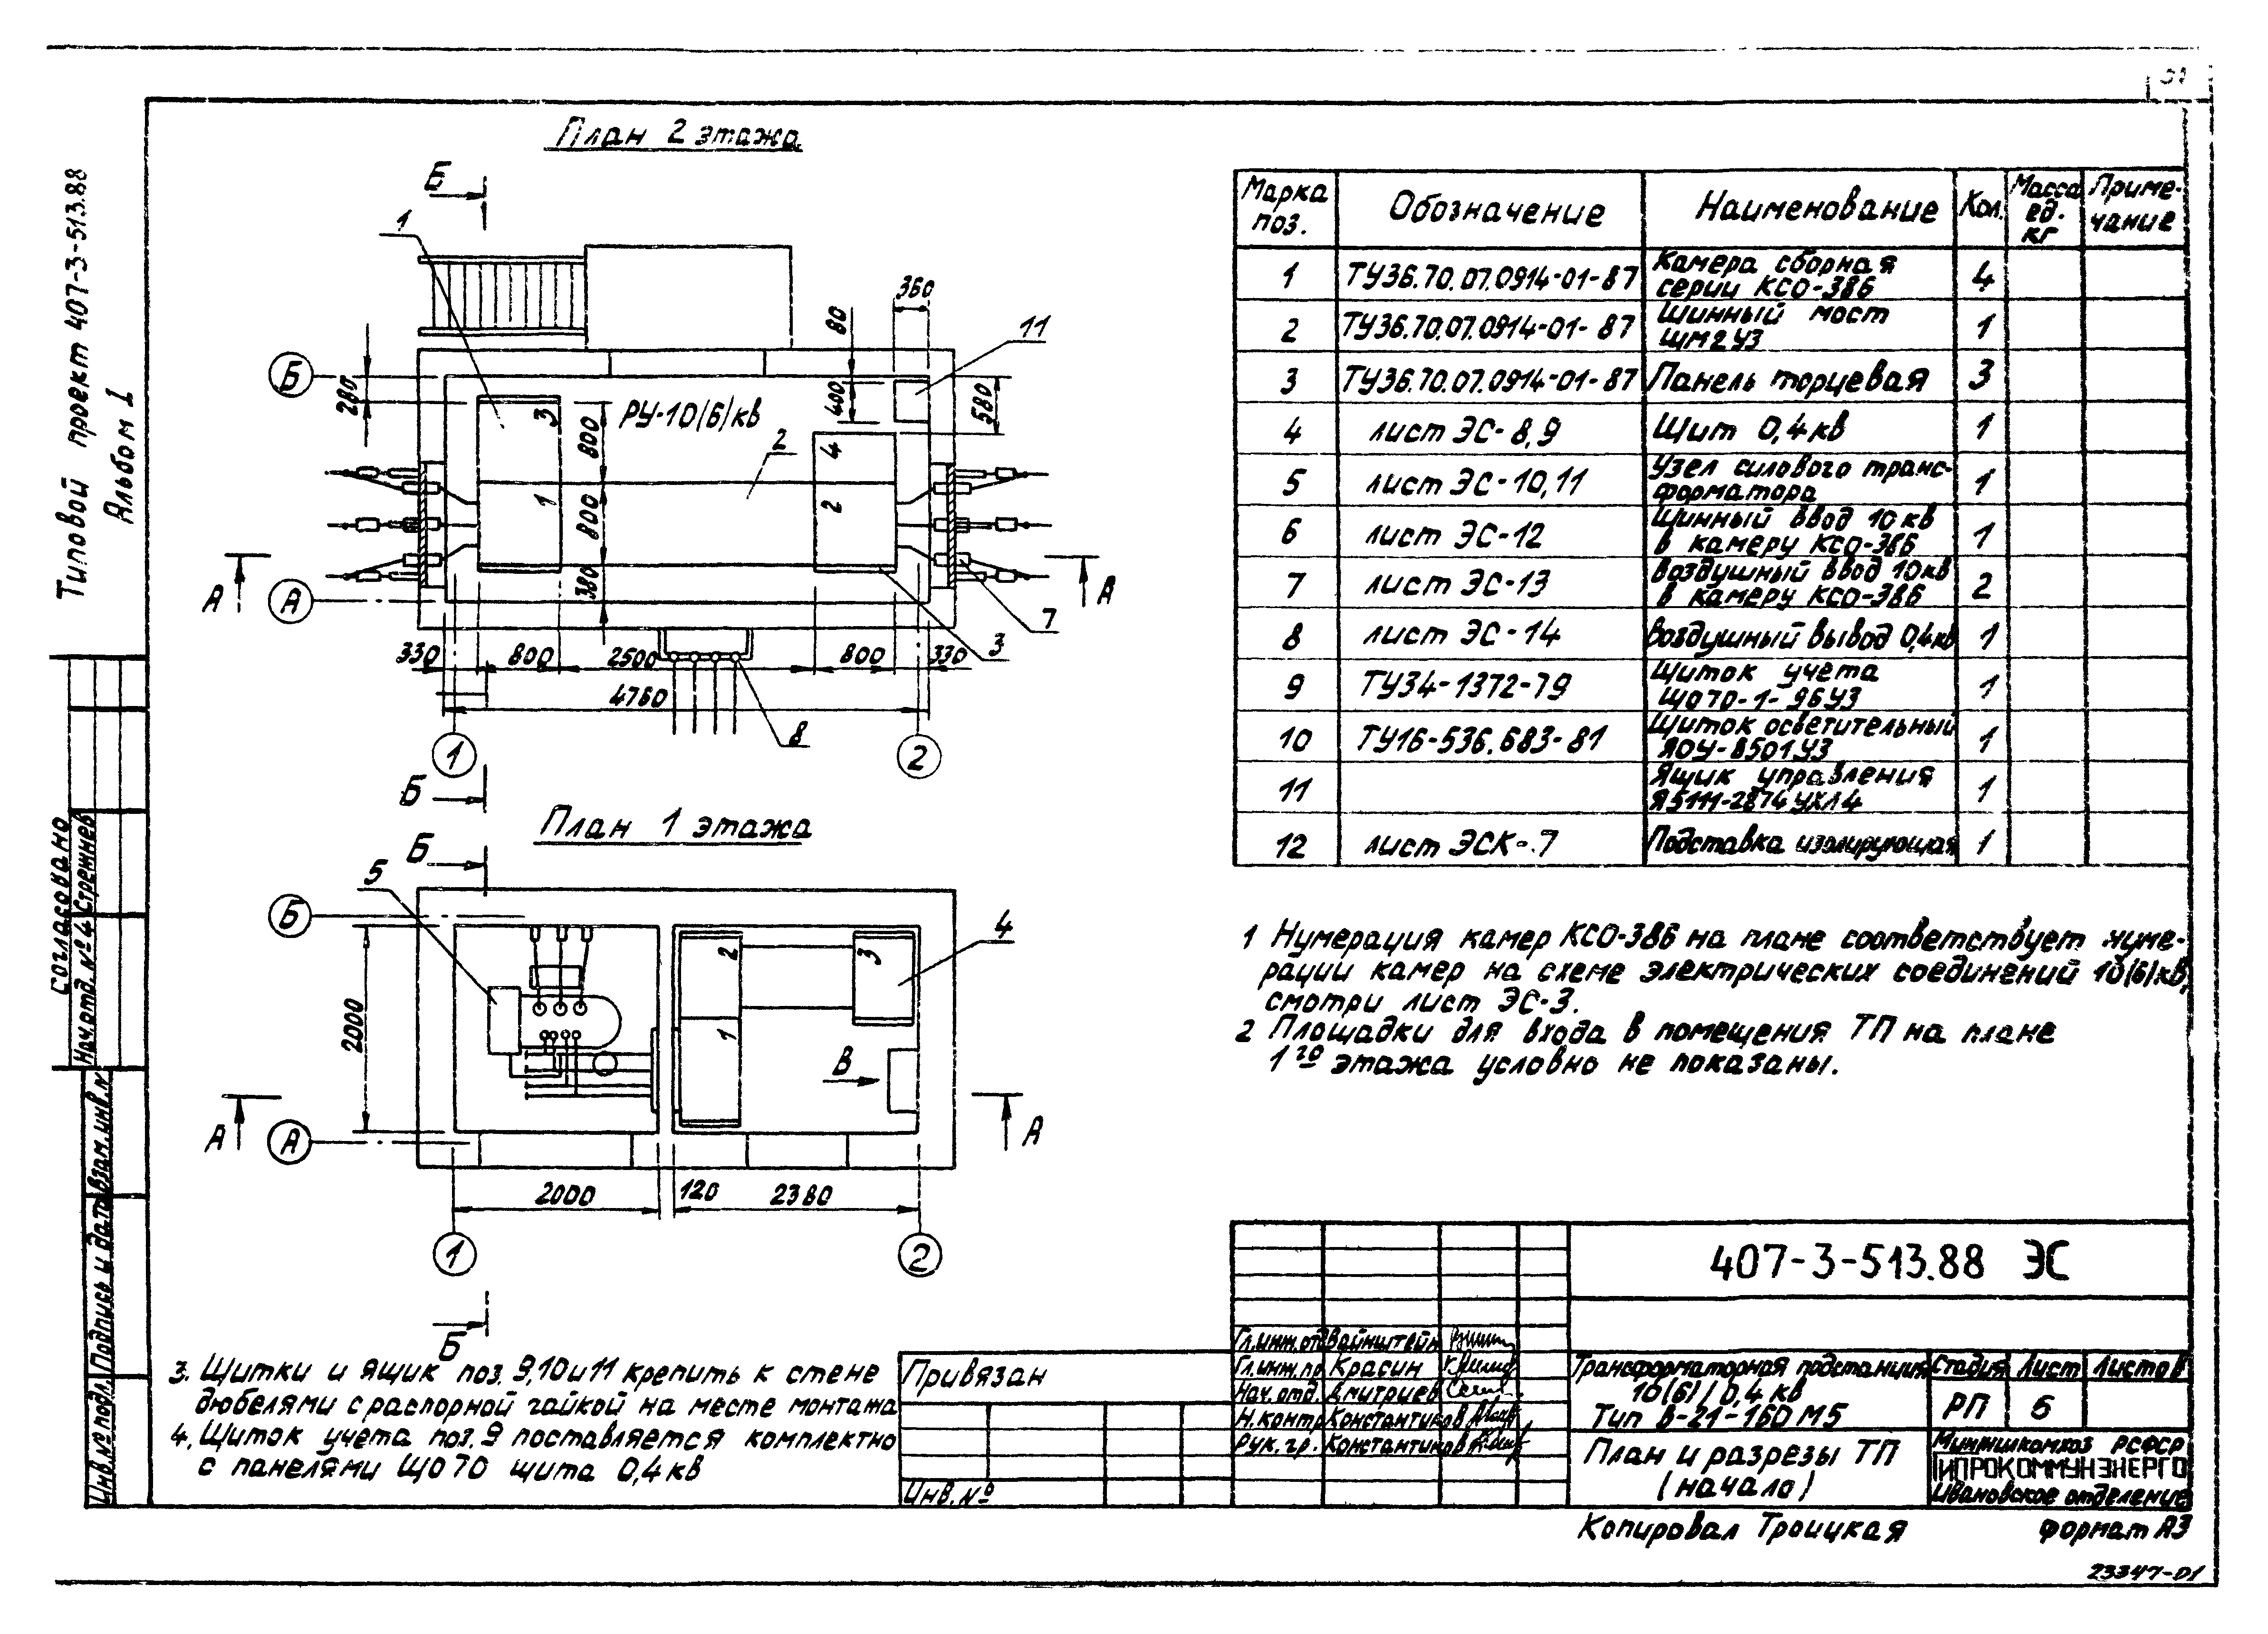 Типовой проект 407-3-513.88
Альбом I
План 2 этажа
Б
1
360
80
11
Б
280
400
580
3
РУ-10/6/кв
800
2
4
1
800
2
380
А
А
А
7
3
330
800
2500
800
330
4760
8
1
2
Б
План 1 этажа
Б
5
Б
4
2
3
2000
1
В
А
А
А
2000
120
2380
1
2
Б
Марка поз.
Обозначение
Наименование
Кол.
Масса ед. кг
Приме-чание
1 ТУ36.70.07.0914-01-87 Камера сборная
серии КСО-386 4
2 ТУ36.70.07.0914-01-87 Шинный мост
ШМ2У3 1
3 ТУ36.70.07.0914-01-87 Панель торцевая 3
4 лист ЭС-8,9 Щит 0,4кв 1
5 лист ЭС-10,11 Узел силового транс-
форматора 1
6 лист ЭС-12 Шинный ввод 10кв
в камеру КСО-386 1
7 лист ЭС-13 Воздушный ввод 10кв
в камеру КСО-386 2
8 лист ЭС-14 Воздушный вывод 0,4кв 1
9 ТУ34-1372-79 Щиток учета
ЩО70-1-96У3 1
10 ТУ16-536.683-81 Щиток осветительный
ЯОУ-8501У3 1
11 Ящик управления
Я5111-2874УХЛ4 1
12 лист ЭСК-7 Подставка изолирующая 1
1 Нумерация камер КСО-386 на плане соответствует нуме-
рации камер на схеме электрических соединений 10/6/кв,
смотри лист ЭС-3.
2 Площадки для входа в помещения ТП на плане
1го этажа условно не показаны.
3. Щитки и ящик поз. 9,10 и 11 крепить к стене
дюбелями с распорной гайкой на месте монтажа
4. Щиток учета поз. 9 поставляется комплектно
с панелями ЩО70 щита 0,4кв
Согласовано
Нач.отд.№4 Стрежнев
Взам.инв.№
Подпись и дата
Инв.№подл.
Привязан
Инв.№
407-3-513.88 ЭС
Гл.инж.отд Вайнштейн
Гл.инж.пр Красин
Нач.отд. Дмитриев
Н.контр Константинов
Рук.гр. Константинов
Трансформаторная подстанция
10(6)/0,4 кв
Тип В-21-160М5
Стадия Лист Листов
РП 6
План и разрезы ТП
(начало)
Минжилкомхоз РСФСР
ГИПРОКОММУНЭНЕРГО
Ивановское отделение
Копировал Троицкая
формат А3
23347-01